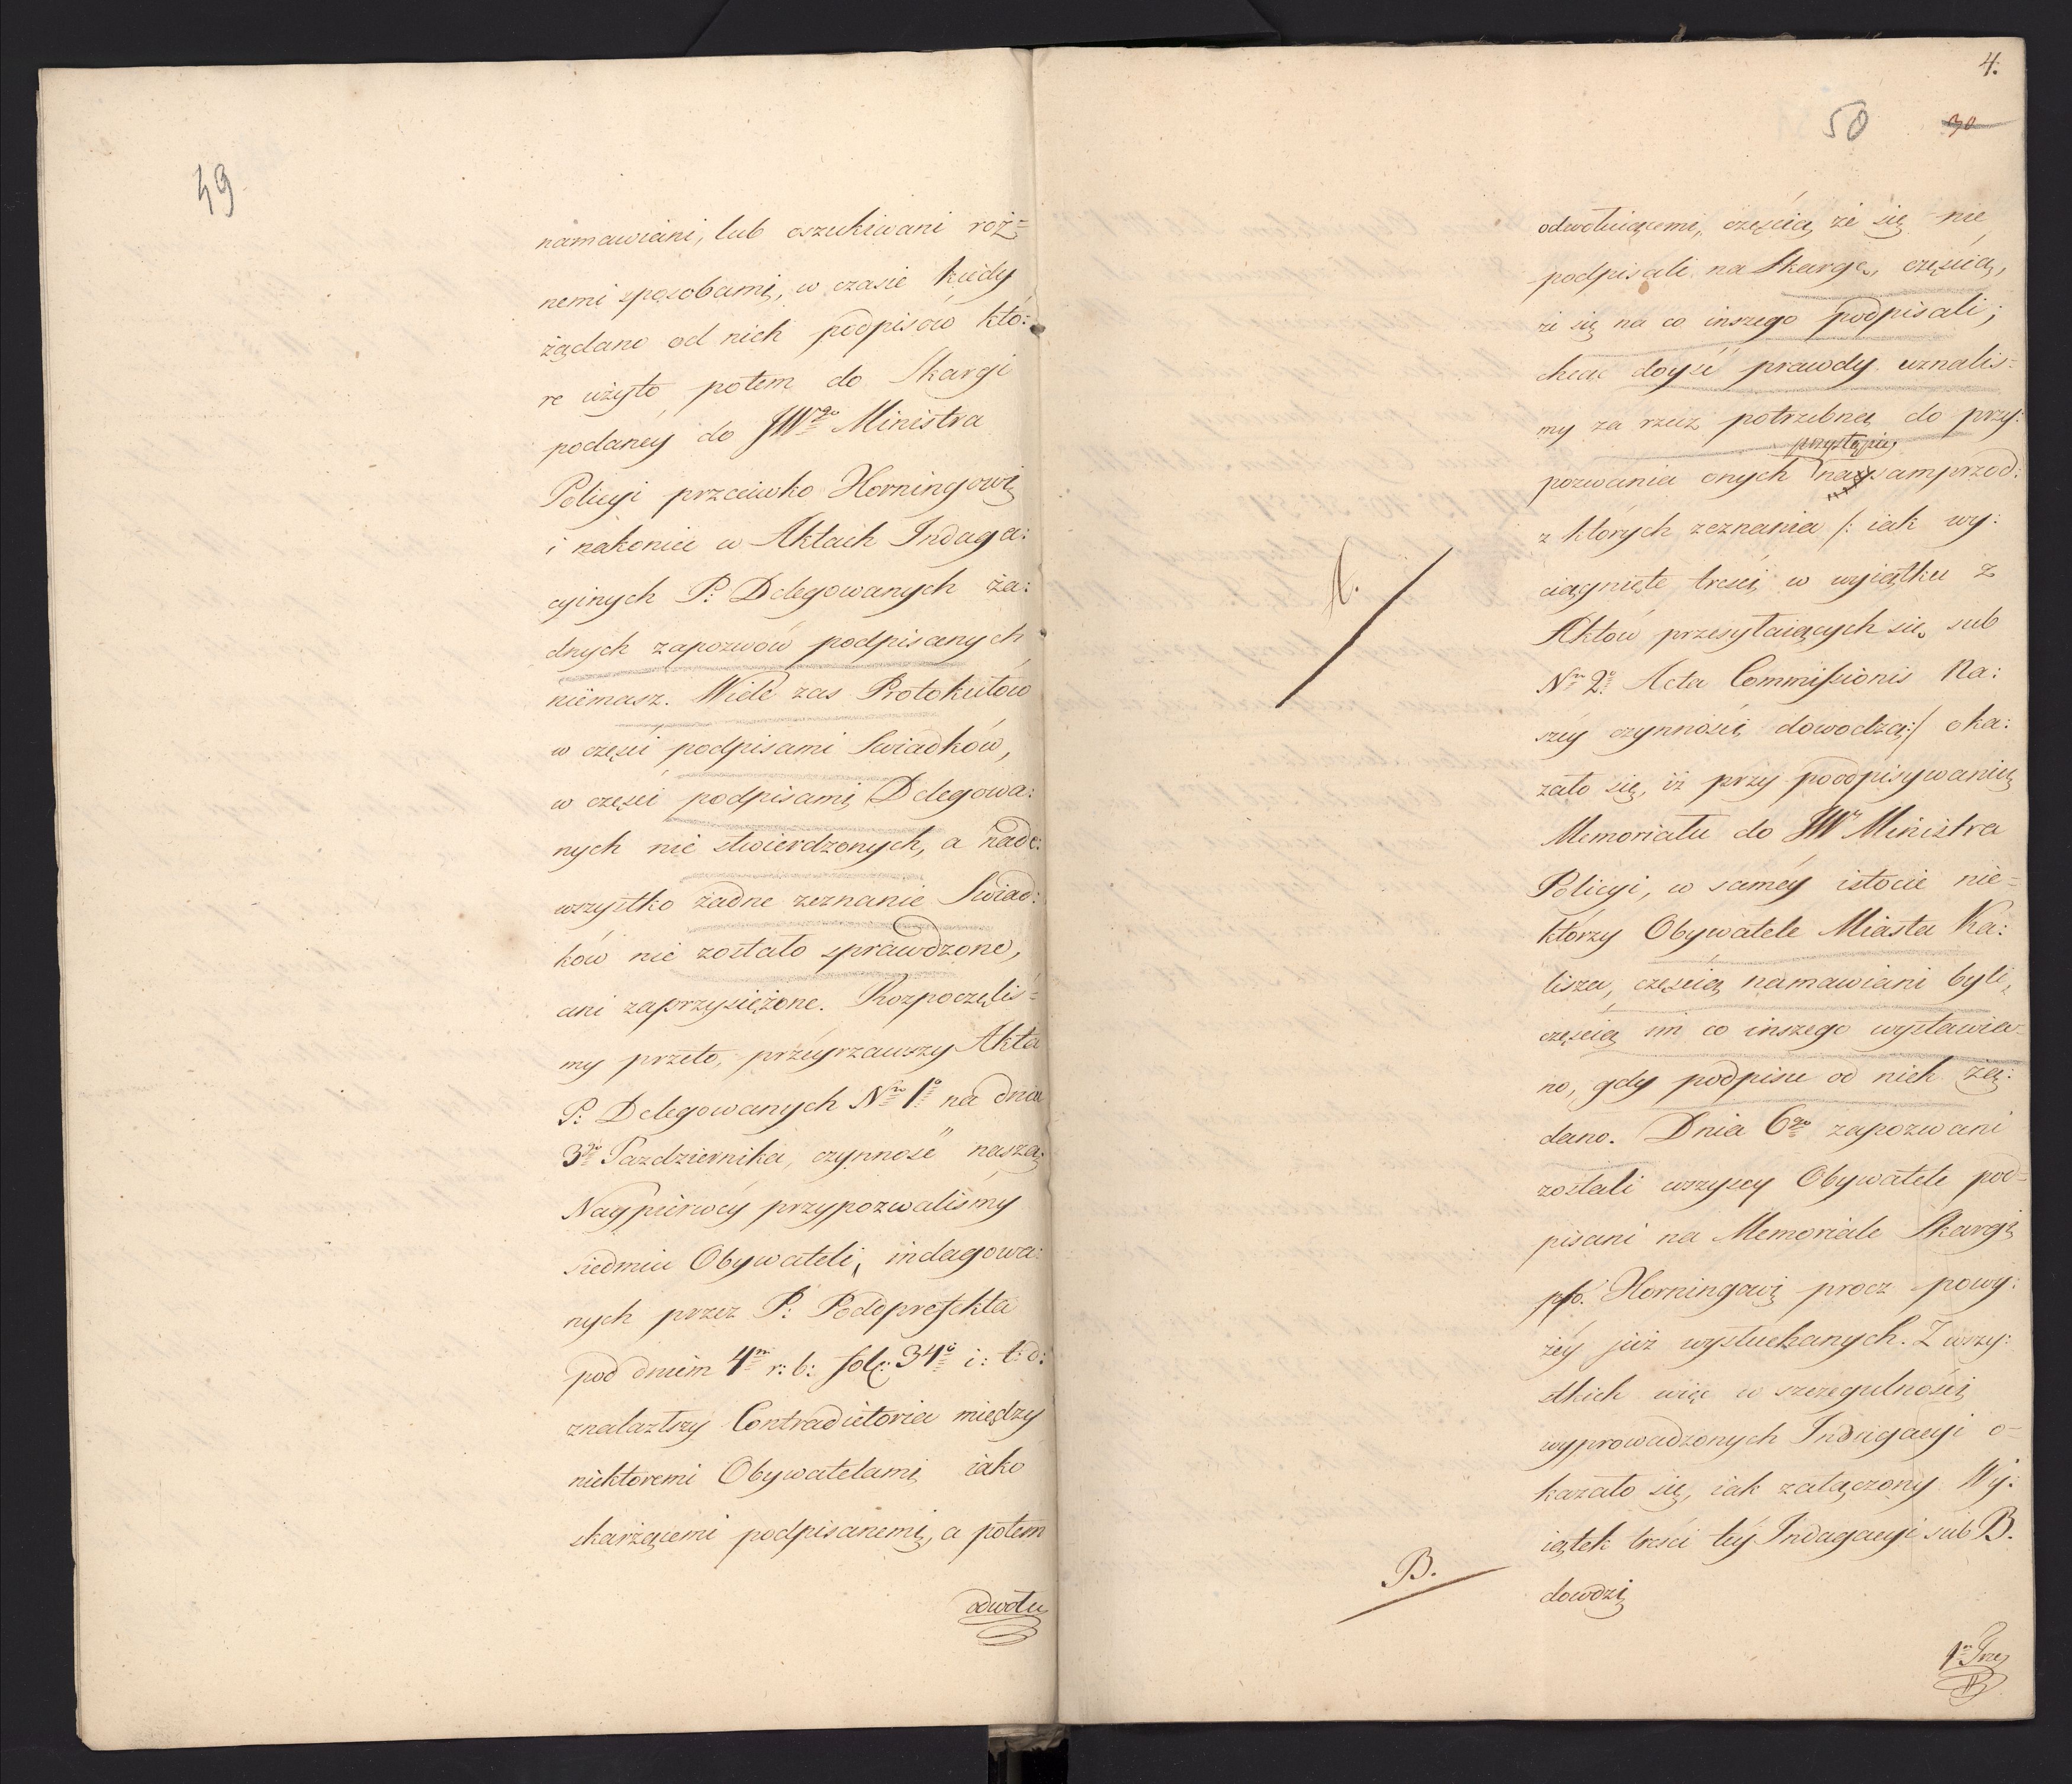 49
namawiani, lub oszukiwani roż=
nemi sposobami, w czasie kiedy
żądano od nich podpisów któ:
re użyto potem do Skargi
podaney do JWgo Ministra
Policyi przeciwko Horningowi
i nakoniec w Aktach Indaga:
cyinych P: Delegowanych ża:
dnych zapozwów podpisanych
niemasz. Wiele zas Protokułów
w części podpisami Swiadków,
w części podpisami Delegowa:
nych nie stwierdzonych, a nade:
wszystko żadne zeznanie Swiad:
ków nie zostało sprawdzone,
ani zaprzysiężone. Rozpoczęlis=
my przeto, przeyrzawszy Akta
P: Delegowanych Nro 1o na dniu
3go Pazdziernika, czynność naszą
Naypierwéy przypozwaliśmy
siedmiu Obywateli, indagowa:
nych przez P: Podprefekta
pod dniem 4m r: b: fol: 34o i: t: d:
znalazłszy Contradictoria między
niektoremi Obywatelami iako
skarżącemi podpisanemi, a potem
odwołu
4.
50 30
odwołuiącemi, częścią że się nie
podpisali na Skargę, częścią,
że się na co inszego podpisali;
chcąc doyść prawdy uznalis=
my za rzecz potrzebną do przy:
przystąpić
pozwania onych naysamprzod:
z których zeznania /: iak wy:
ciągnięte treści w wyiątku z
Aktów przesyłaiących się sub
Nro 2o Acta Commissionis Na:
széy czynności dowodzą:/ oka:
zało się, iż przy podpisywaniu
Memoriału do JWo Ministra
Policyi, w saméy istocie nie=
którzy Obywatele Miasta Ka:
lisza, częścią namawiani byli,
częścią im co inszego wystawia=
no, gdy podpisu od nich żą:
dano. Dnia 6go zapozwani
zostali wszyscy Obywatele pod=
pisani na Memoriale Skargi
pko. Horningowi procz powy:
żéy już wysłuchanych. Z wszy:
stkich więc w szczegulności
wyprowadzonych Indagacyi o=
kazało się, iak załączony Wy:
iątek treści téy Indagacyi sub B.
dowodzi
A.
B.
1o Prze